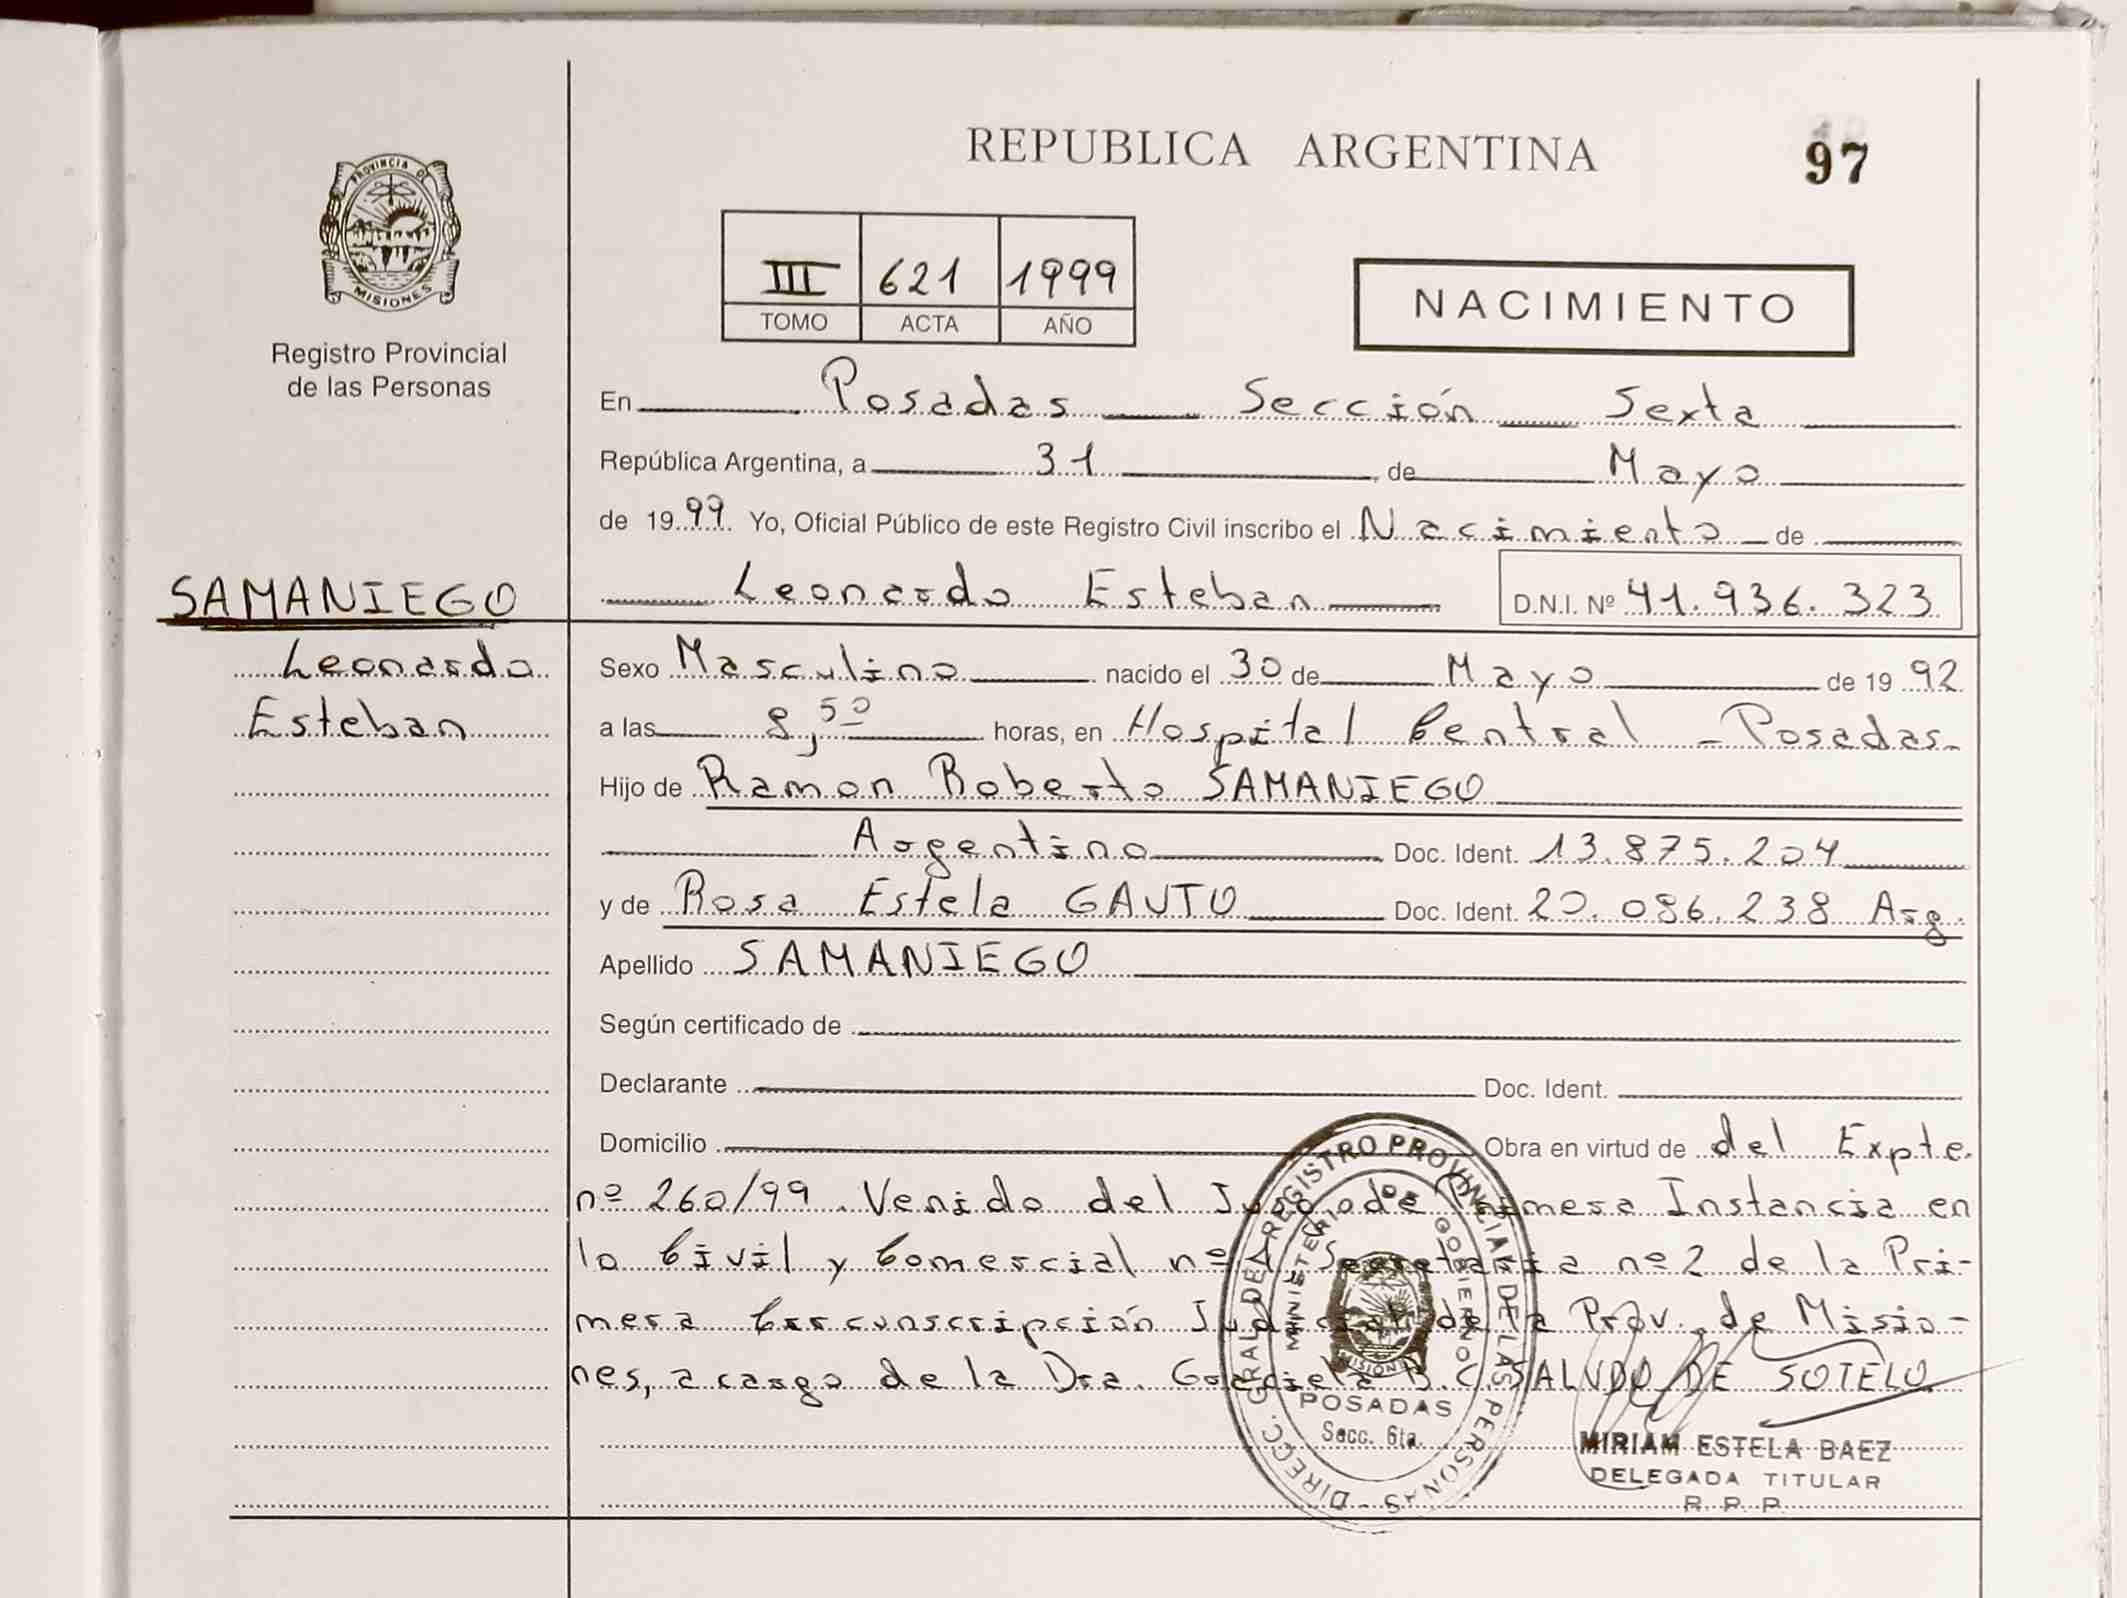 REPUBLICA ARGENTINA
97
PROVINCIA DE MISIONES
Registro Provincial
de las Personas
III 621 1999
TOMO ACTA AÑO
NACIMIENTO
En Posadas Sección Sexta
República Argentina, a 31, de Mayo
de 1999. Yo, Oficial Público de este Registro Civil inscribo el Nacimiento de
SAMANIEGO
Leonardo
Esteban
Leonardo Esteban D.N.I. Nº 41.936.323
Sexo Masculino nacido el 30 de Mayo de 1992
a las 8,50 horas, en Hospital Central - Posadas-
Hijo de Ramon Roberto SAMANIEGO
Argentino Doc. Ident. 13.875.204
y de Rosa Estela GAUTO Doc. Ident. 20.086.238 Arg.
Apellido SAMANIEGO
Según certificado de
Declarante Doc. Ident.
Domicilio Obra en virtud de del Expte.
nº 260/99. Venido del de Primera Instancia en
lo Civil y Comercial nº Secretaria nº 2 de la Pri-
mera Circunscripción Judicial de la Prov. de Misio-
nes, a cargo de la Dra. Graciela SALVDO DE SOTELO
DIRECC. GRAL DEL REGISTRO PROVINCIAL DE LAS PERSONAS
MINISTERIO DE GOBIERNO
MISIONES
POSADAS
Secc. 6ta.
MIRIAM ESTELA BAEZ
DELEGADA TITULAR
R. P. P.